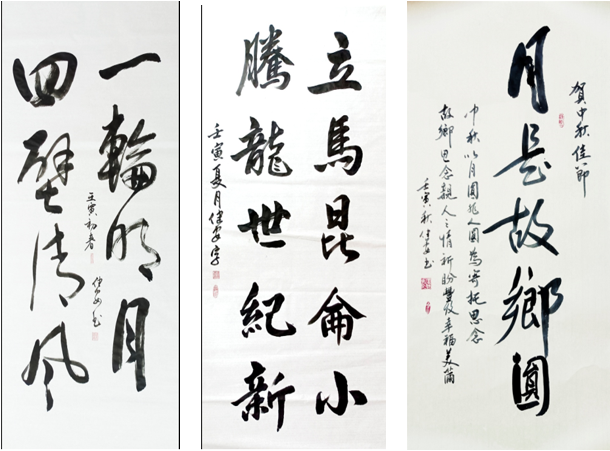 一輪明月
四壁清風
壬寅初春
立馬昆侖小
騰龍世紀新
壬寅夏月健安字
賀中秋佳節
月是故鄉圓
中秋以月圓兆人圓為寄托思念
故鄉思念親人之情祈盼豐收幸福美滿
壬寅秋健安書